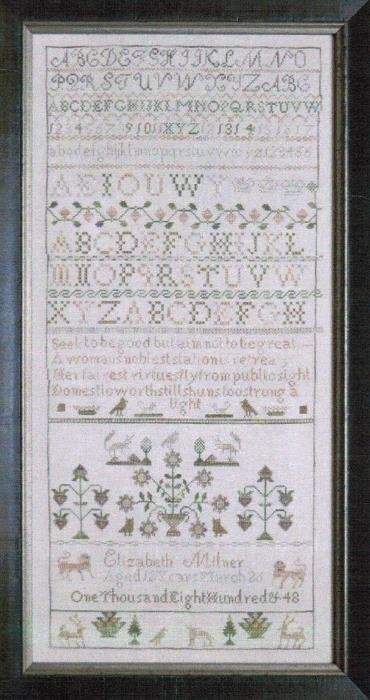 ABCDEFGHIJKLMNO
PQRSTUVWXYZABC
ABCDEFGHIJKLMNOPQRSTUVW
12 4 5 6 7 9101 XYZ 12 1314 15 16 17
abcdefghijklmnopqrstuvwxyz123456
AEIOUWY
ABCDEFGHIJKL
MNOPQRSTUVW
XYZABCDEFGH
Seek to be good but aim not to be great
A womans noblest station is retreat
Her fairest virtues fly from public sight
Domestic worth still shuns too strong a
light
Elizabeth Milner
Aged 12 Years March 26
One Thousand Eight Hundred & 48